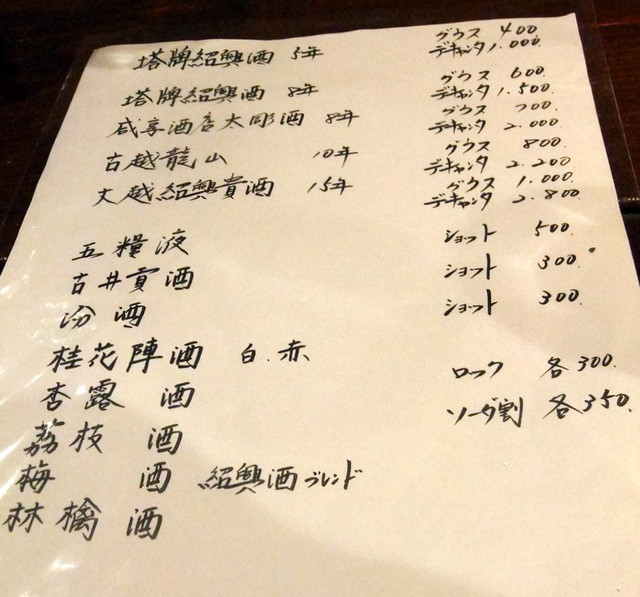 塔牌紹興酒 5年 グラス 400.
デキャンタ 1.000.
塔牌紹興酒 8年 グラス 600.
デキャンタ 1.500.
咸享酒店太彫酒 8年 グラス 700.
デキャンタ 2.000.
古越龍山 10年 グラス 800.
デキャンタ 2.200.
大越紹興貴酒 15年 グラス 1.000.
デキャンタ 2.800.
五糧液 ショット 500.
古井貢酒 ショット 300.
汾酒 ショット 300.
桂花陣酒 白.赤 ロック 各300.
杏露酒 ソーダ割 各350.
茘枝酒
梅酒 紹興酒ブレンド
林檎酒